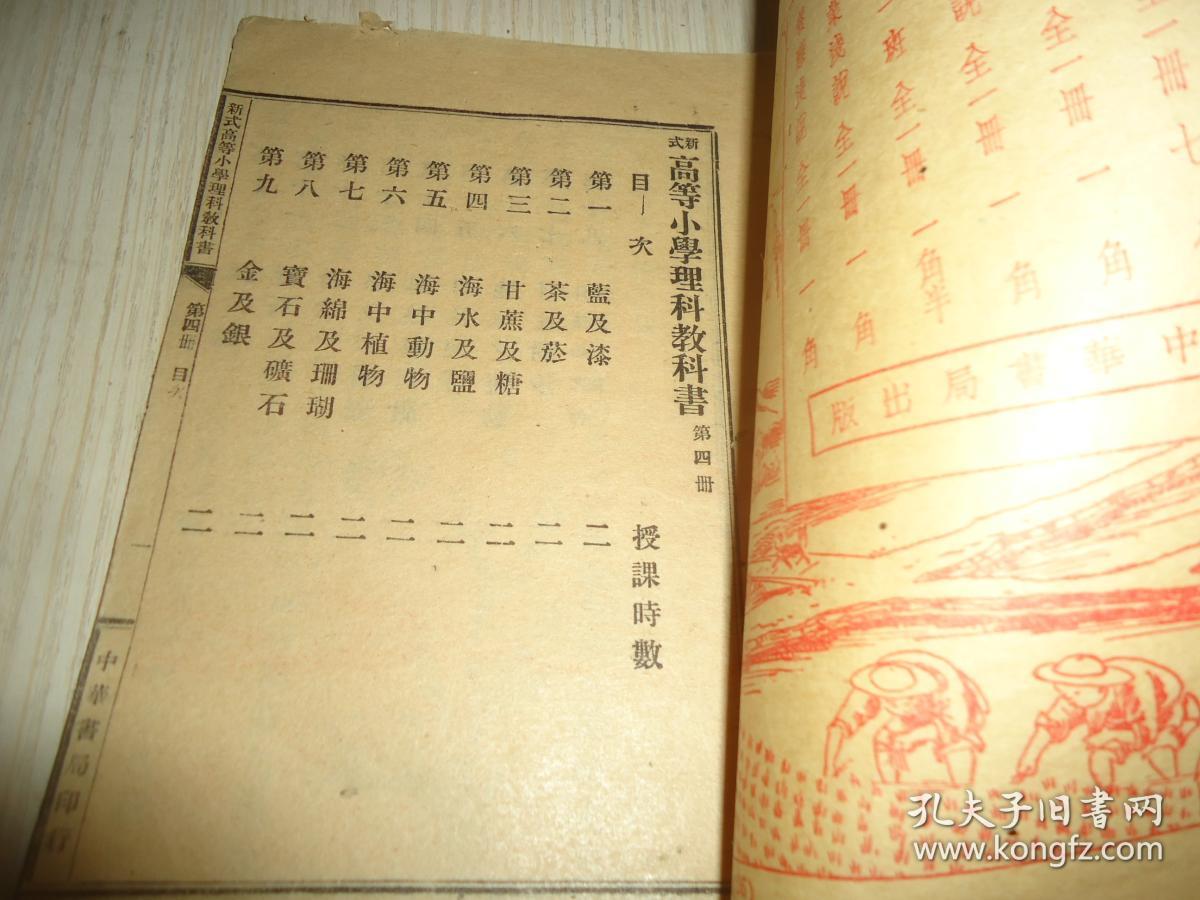 新式高等小學理科教科書 第四冊
目次 授課時數
第一 藍及漆 二
第二 茶及菸 二
第三 甘蔗及糖 二
第四 海水及鹽 二
第五 海中動物 二
第六 海中植物 二
第七 海綿及珊瑚 二
第八 寶石及礦石 二
第九 金及銀 二
新式高等小學理科教科書 第四冊 目次 一 中華書局印行
全一冊
全一冊 一角
說 全一冊 一角
一班 全一冊 一角半
淺說 全一冊 一角
全一冊 一角
中華書局出版
孔夫子旧书网
www.kongfz.com